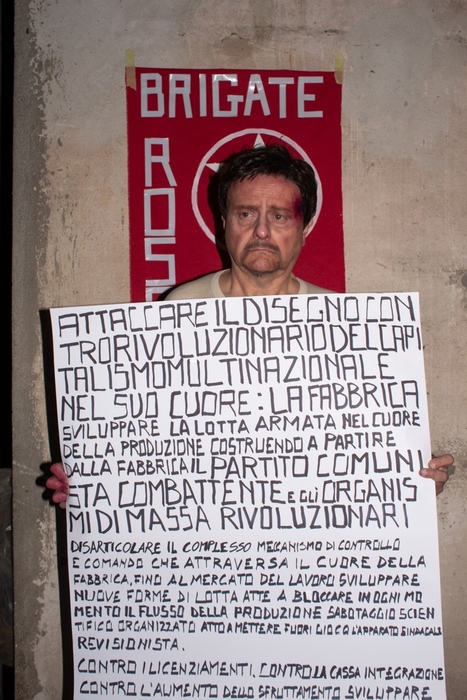 BRIGATE
ROSS
ATTACCARE IL DISEGNO CON
TRORIVOLUZIONARIO DEL CAPI
TALISMO MULTINAZIONALE
NEL SUO CUORE: LA FABBRICA
SVILUPPARE LA LOTTA ARMATA NEL CUORE
DELLA PRODUZIONE COSTRUENDO A PARTIRE
DALLA FABBRICA IL PARTITO COMUNI
STA COMBATTENTE E GLI ORGANIS
MI DI MASSA RIVOLUZIONARI
DISARTICOLARE IL COMPLESSO MECCANISMO DI CONTROLLO
E COMANDO CHE ATTRAVERSA IL CUORE DELLA
FABBRICA, FINO AL MERCATO DEL LAVORO SVILUPPARE
NUOVE FORME DI LOTTA ATTE A BLOCCARE IN OGNI MO
MENTO IL FLUSSO DELLA PRODUZIONE SABOTAGGIO SCIEN
TIFICO ORGANIZZATO ATTO A METTERE FUORI GIOCO L'APPARATO SINDACALE
REVISIONISTA.
CONTRO I LICENZIAMENTI, CONTRO LA CASSA INTEGRAZIONE
CONTRO L'AUMENTO DELLO SFRUTTAMENTO SVILUPPARE